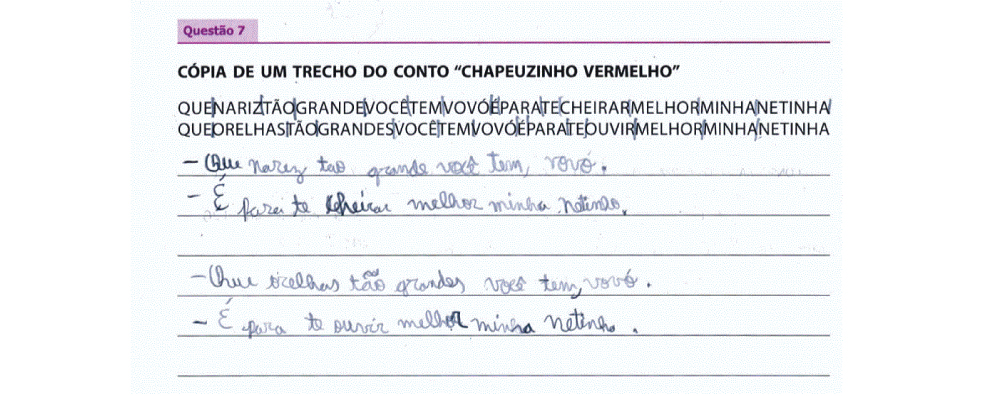 Questão 7
CÓPIA DE UM TRECHO DO CONTO “CHAPEUZINHO VERMELHO”
QUENARIZTÃOGRANDEVOCÊTEMVOVÓÉPARATECHEIRARMELHORMINHANETINHA
QUEORELHASTÃOGRANDESVOCÊTEMVOVÓÉPARATEOUVIRMELHORMINHANETINHA
- Que narez tao grande você tem, vovó.
- É para te cheirar melhor minha
- Que orelhas tão grandes você tem, vovó.
- É para te ouvir melhor minha netinha.